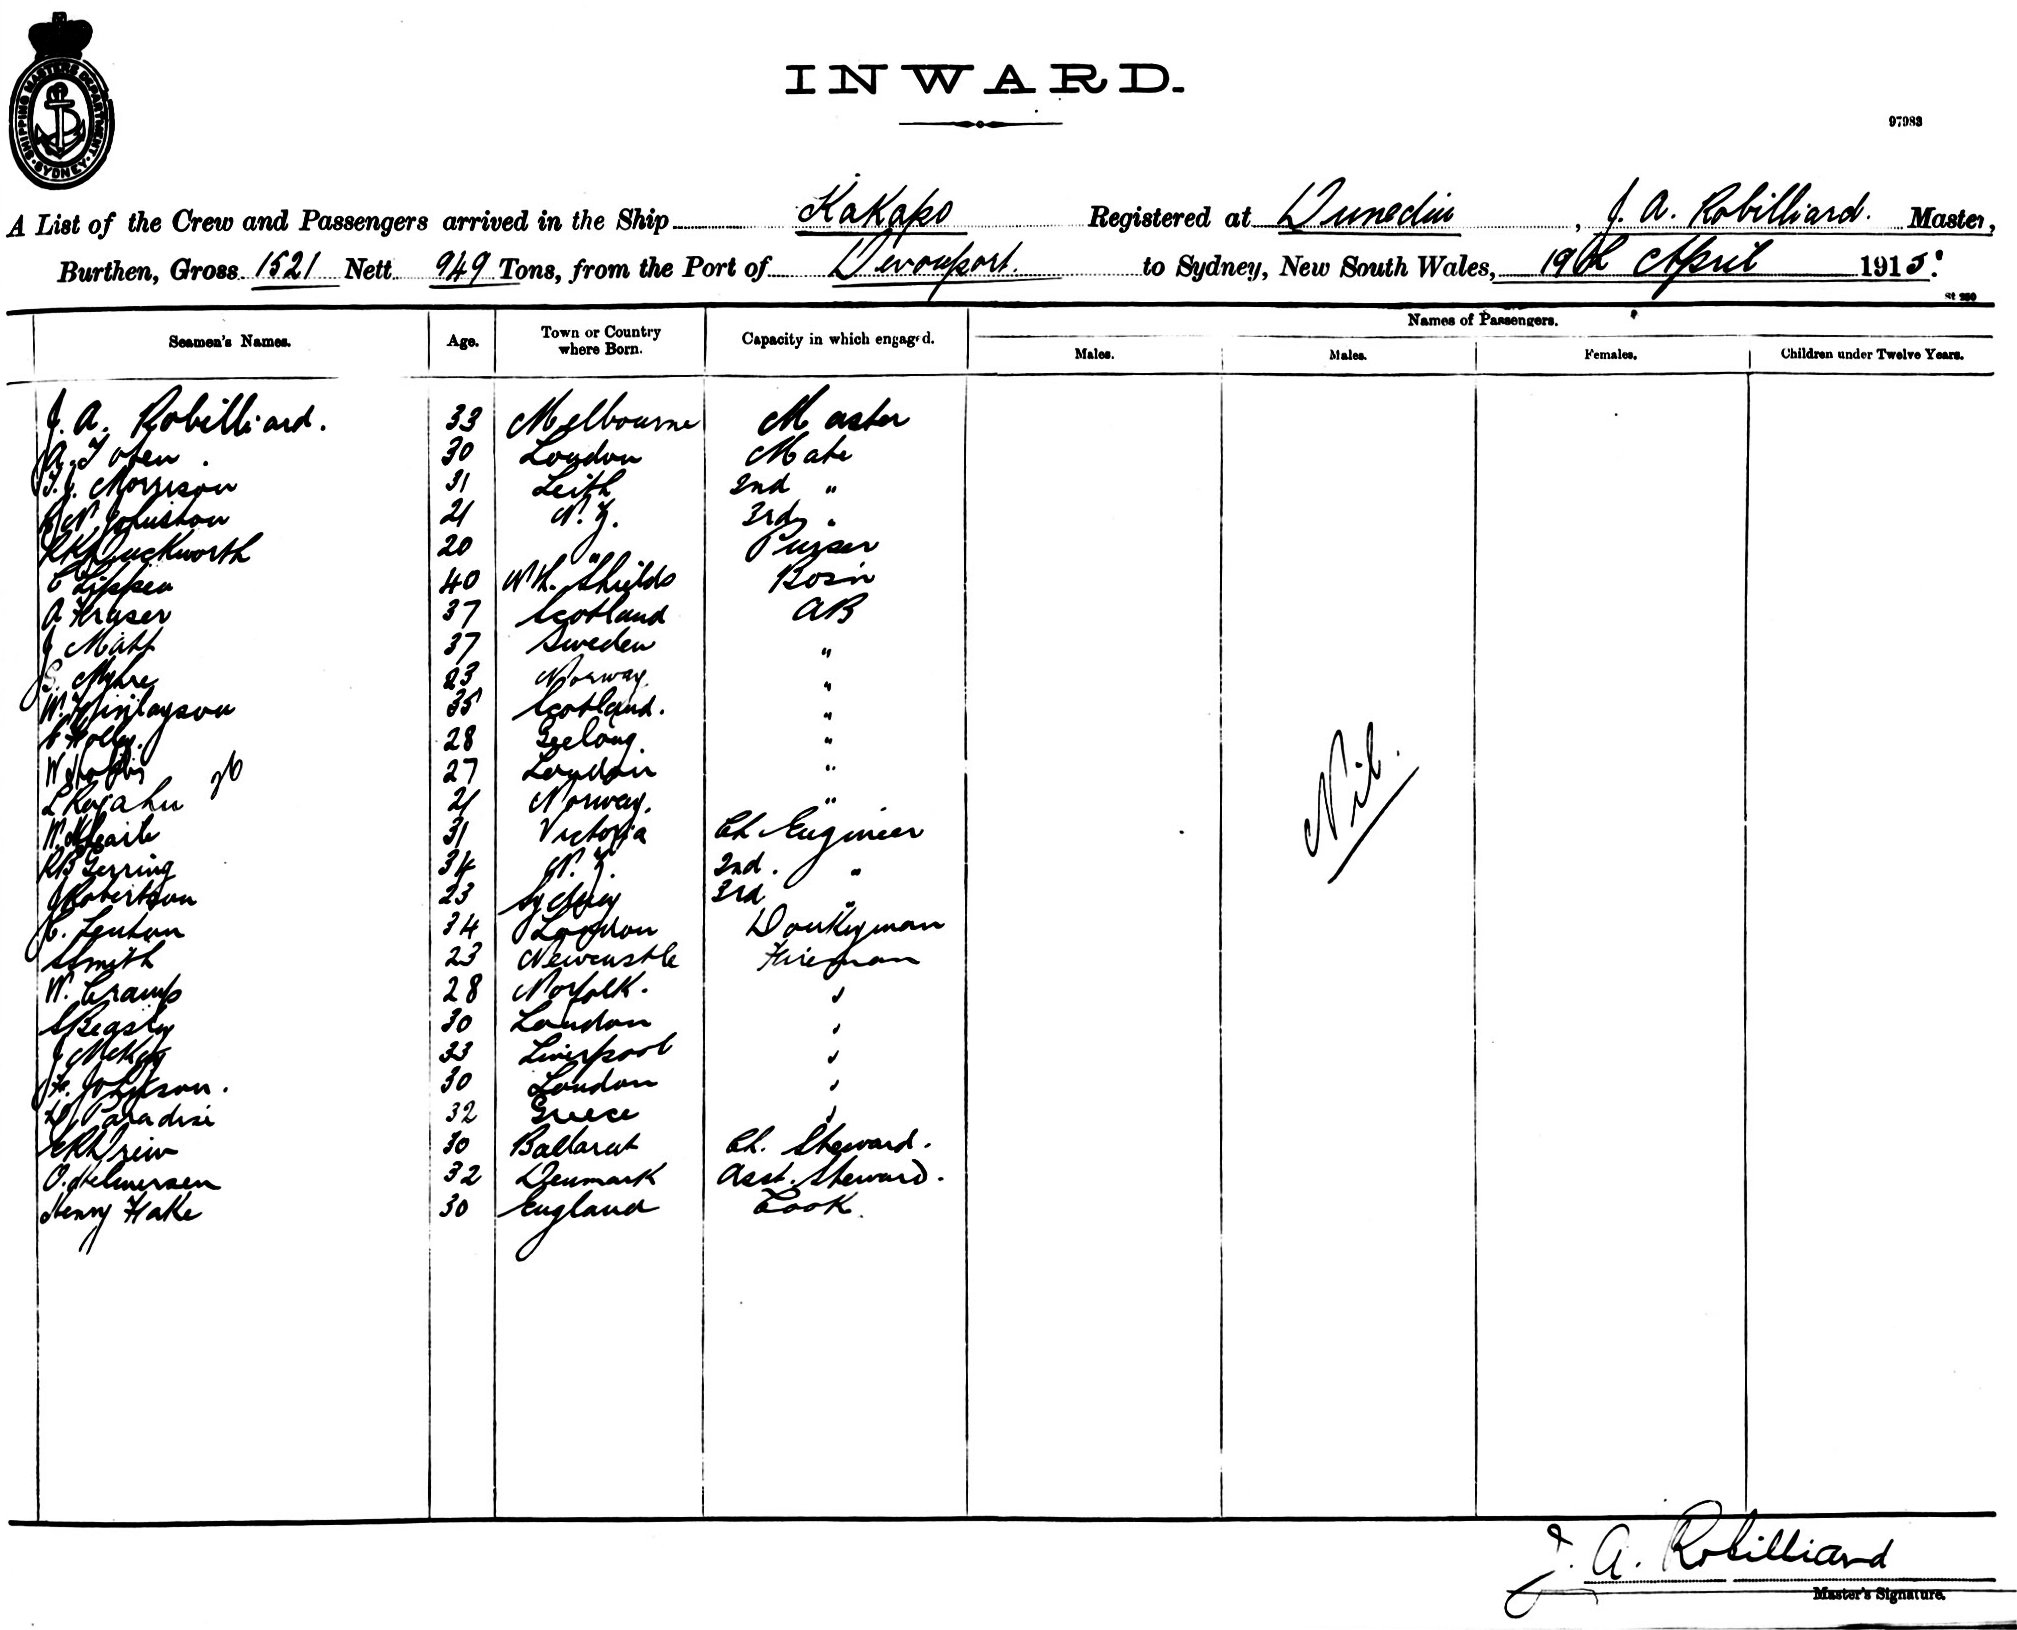 SHIPPING MASTERS DEPARTMENT · SYDNEY ·
INWARD.
97983
A List of the Crew and Passengers arrived in the Ship Kakapo Registered at Dunedin, J. A. Robilliard. Master,
Burthen, Gross 1521 Nett 949 Tons, from the Port of Devonport. to Sydney, New South Wales, 19th April 1915.
Names of Passengers.
Seamen's Names. Age. Town or Country where Born. Capacity in which engaged. Males. Males. Females. Children under Twelve Years.
J. A. Robilliard. 33 Melbourne Master
30 London Mate
Morrison 31 Leith 2nd "
Johnston 21 N. Z. 3rd "
Duckworth 20 " Purser
40 Nth. Shields Bosn
A Fraser 37 Scotland AB
J 37 Sweden "
S. Myhre 23 Norway. "
W. Finlayson 35 Scotland. "
Holley. 28 Geelong. "
W 27 London "
L 21 Norway. "
W. 31 Victoria Ch Engineer
RB Gerring 34 N. Z. 2nd. "
J Robertson 23 Sydney 3rd "
Lenton 34 London Donkeyman
S Smith 23 Newcastle Fireman
W. Cramp 28 Norfolk. "
S Beasley 30 London "
J McKay 33 Liverpool "
Johnson. 30 London "
Paradisi 32 Greece "
Drew 30 Ballarat Ch. Steward.
O. Helmersen 32 Denmark Asst. Steward.
Henry Hake 30 England Cook
Nil.
J. A. Robilliard
Master's Signature.